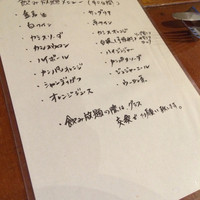 飲み放題メニュー
・生ビール
・サングリア
・白ワイン
・赤ワイン
・カシスソーダ
・カシスオレンジ
・カシスウーロン
・ハイボール
・ハイジンジャー
・カンパリオレンジ
・カンパリソーダ
・シャンディガフ
・ジンジャーエール
・オレンジジュース
・ウーロン茶
・飲み放題の際は、グラス
交換でお願い致します。